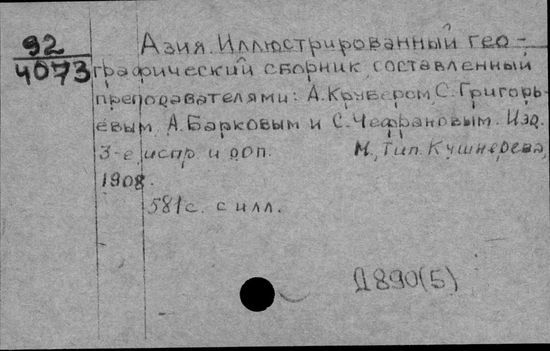 92 Азия. Иллюстрированный гео-
4073 графический сборник, составленный
преподавателями: А.Крубером, С.Григорь-
евым, А.Барковым и С.Чефрановым. Изд.
3-е, испр. и доп. М., Тип. Кушнерева,
1908.
581с. с илл.
Д890(5)